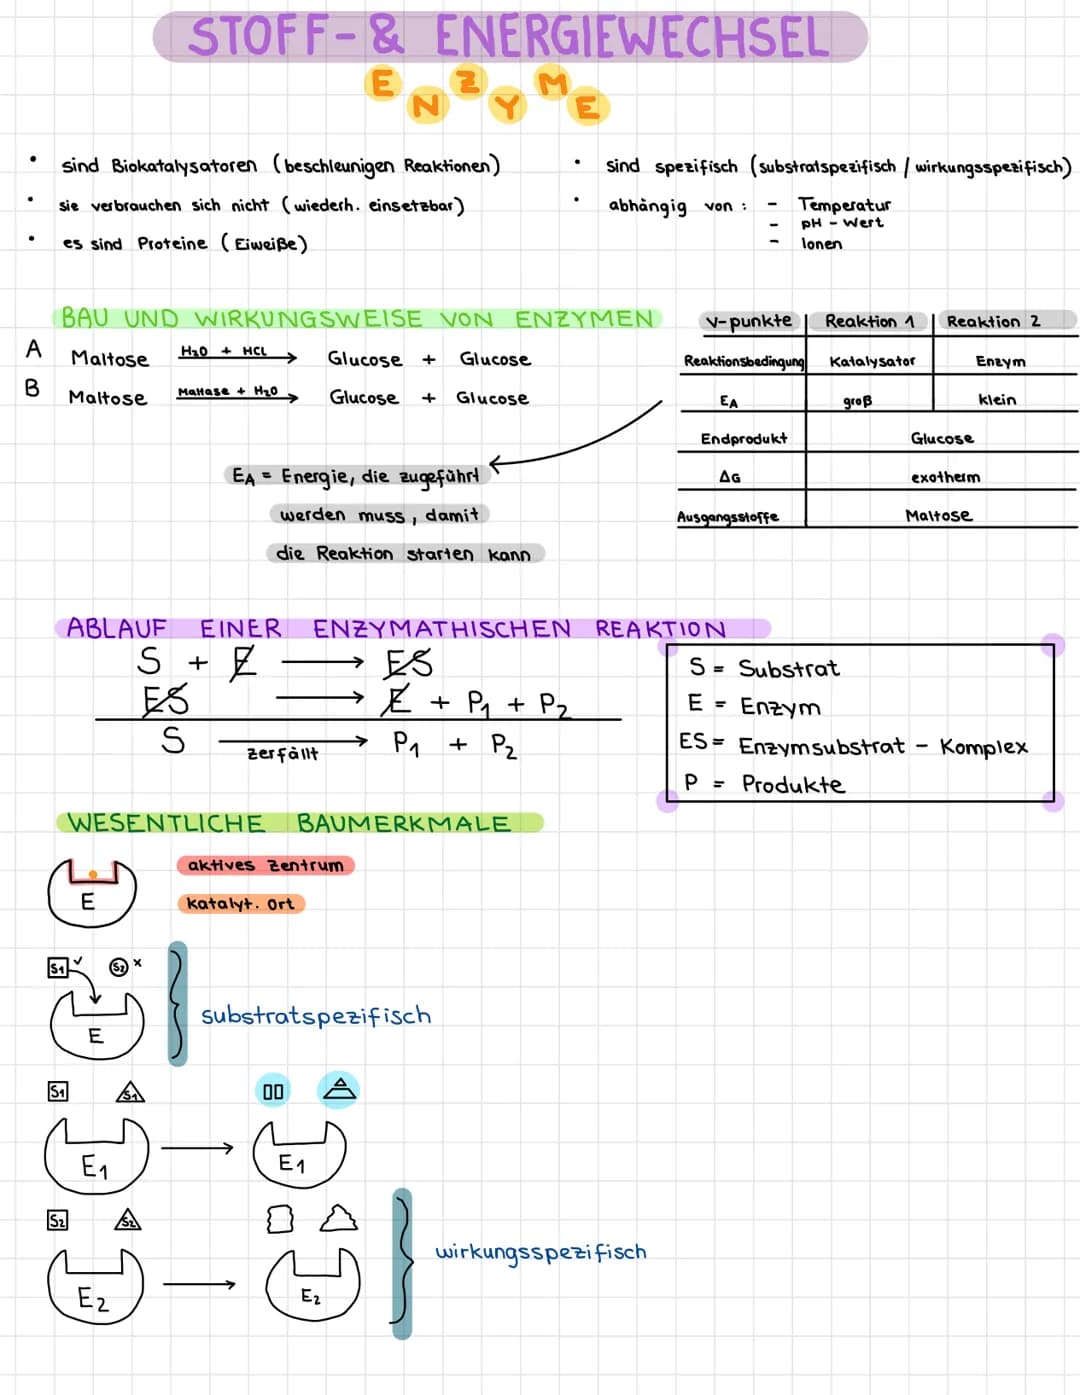 STOFF-& ENERGIEWECHSEL
ENZYME
• sind Biokatalysatoren (beschleunigen Reaktionen)
• sie verbrauchen sich nicht (wiederh. einsetzbar)
• es sind Proteine (Eiweiße)
• sind spezifisch (substratspezifisch / wirkungsspezifisch)
• abhängig von: - Temperatur
- pH-Wert
- Ionen
BAU UND WIRKUNGSWEISE VON ENZYMEN
A Maltose H₂O + HCL → Glucose + Glucose
B Maltose Maltase + H₂O → Glucose + Glucose
EA = Energie, die zugeführt
werden muss, damit
die Reaktion starten kann
V-punkte Reaktion 1 Reaktion 2
Reaktionsbedingung Katalysator Enzym
EA groß klein
Endprodukt Glucose
ΔG exotherm
Ausgangsstoffe Maltose
ABLAUF EINER ENZYMATHISCHEN REAKTION
S + E → ES
ES → E + P₁ + P₂
S zerfällt → P₁ + P₂
S = Substrat
E = Enzym
ES = Enzymsubstrat - Komplex
P = Produkte
WESENTLICHE BAUMERKMALE
aktives Zentrum
E
katalyt. Ort
S1 ✓ S2 x
E
substratspezifisch
S1 S1
E₁ → E₁
S2 S2
E₂ → E₂
wirkungsspezifisch